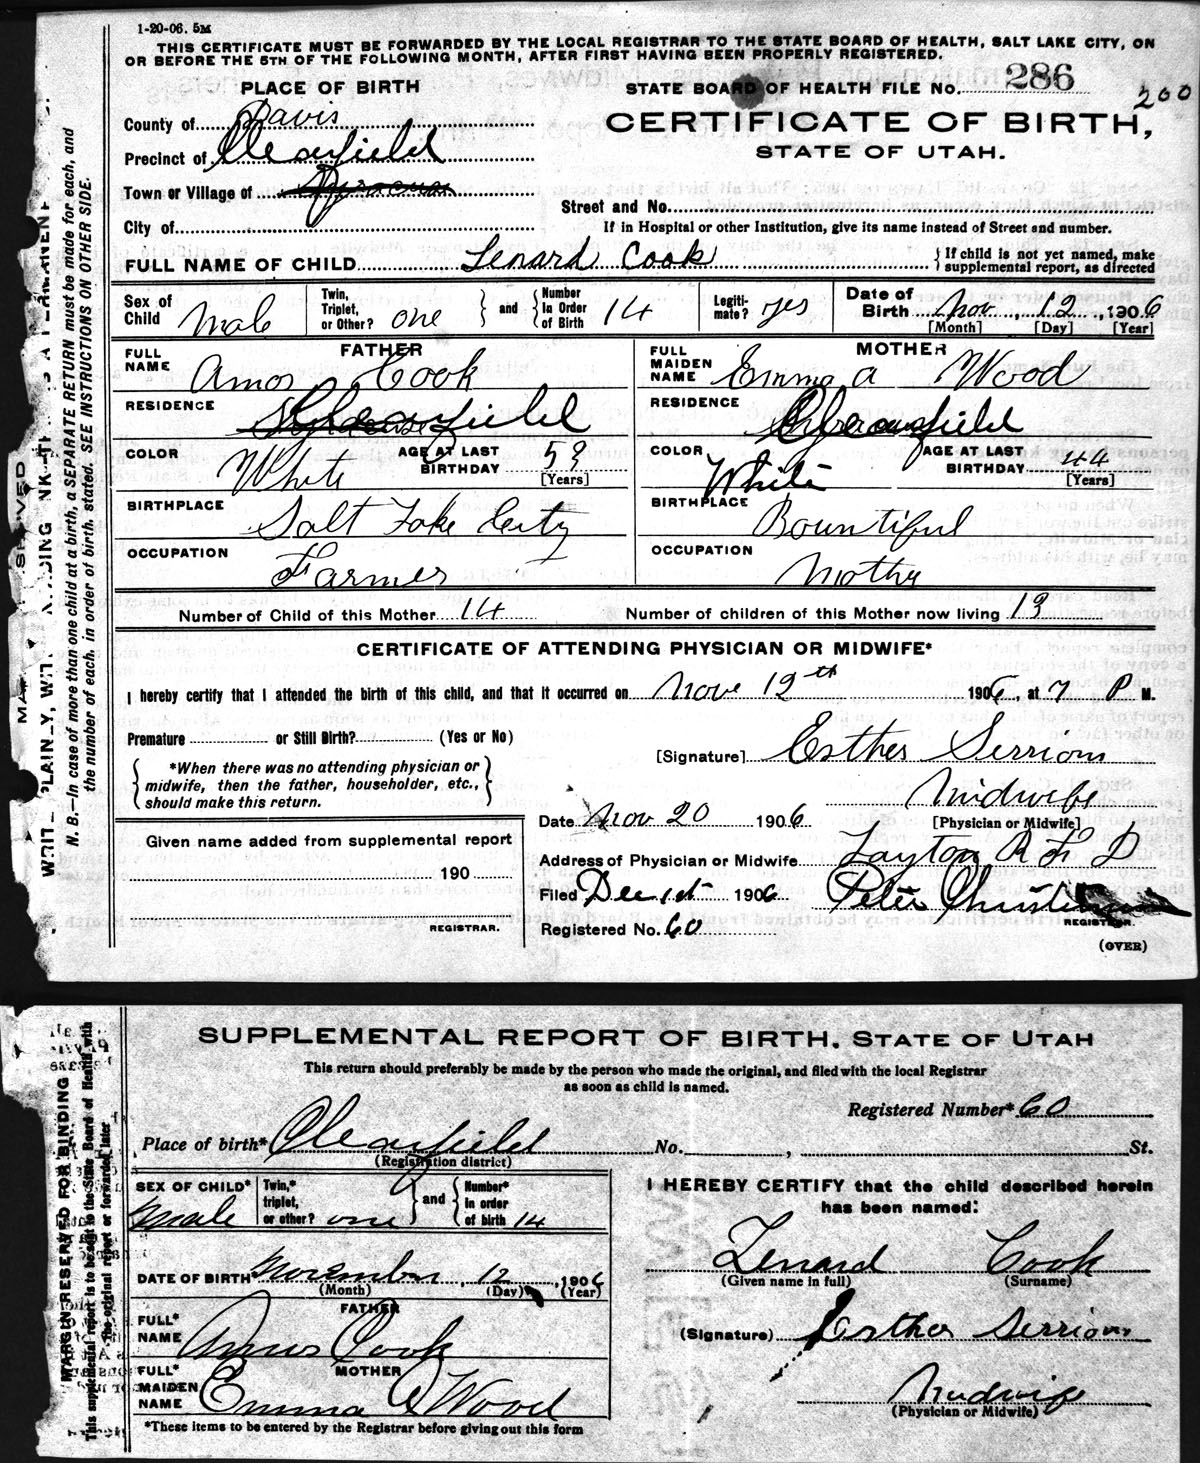 1-20-06. 5M
THIS CERTIFICATE MUST BE FORWARDED BY THE LOCAL REGISTRAR TO THE STATE BOARD OF HEALTH, SALT LAKE CITY, ON
OR BEFORE THE 5TH OF THE FOLLOWING MONTH, AFTER FIRST HAVING BEEN PROPERLY REGISTERED.
PLACE OF BIRTH
STATE BOARD OF HEALTH FILE No. 286
200
County of Davis
CERTIFICATE OF BIRTH,
Precinct of Clearfield
STATE OF UTAH.
Town or Village of Syracuse
Street and No.
City of
If in Hospital or other Institution, give its name instead of Street and number.
FULL NAME OF CHILD Lenard Cook
{ If child is not yet named, make
supplemental report, as directed
Sex of Child Male
Twin, Triplet, or Other? one } and { Number In Order of Birth 14
Legiti- mate? yes
Date of Birth Nov, 12, 1906
[Month] [Day] [Year]
FATHER
FULL NAME Amos Cook
MOTHER
FULL MAIDEN NAME Emma A Wood
RESIDENCE Clearfield
RESIDENCE Clearfield
COLOR White AGE AT LAST BIRTHDAY 52 [Years]
COLOR White AGE AT LAST BIRTHDAY 44 [Years]
BIRTHPLACE Salt Lake City
BIRTHPLACE Bountiful
OCCUPATION Farmer
OCCUPATION Mother
Number of Child of this Mother 14 Number of children of this Mother now living 13
CERTIFICATE OF ATTENDING PHYSICIAN OR MIDWIFE*
I hereby certify that I attended the birth of this child, and that it occurred on Nove 12th 1906, at 7 P M.
Premature or Still Birth? (Yes or No)
[Signature] Esther Serrions
{ *When there was no attending physician or
midwife, then the father, householder, etc.,
should make this return. }
Midwife
[Physician or Midwife]
Date Nov 20 1906
Given name added from supplemental report
190
REGISTRAR.
Address of Physician or Midwife Layton R F D
Filed Dec 1st 1906 Peter Christensen
REGISTRAR.
Registered No. 60
(OVER)
WRITE PLAINLY, WITH
N. B.—In case of more than one child at a birth, a SEPARATE RETURN must be made for each, and
the number of each, in order of birth, stated. SEE INSTRUCTIONS ON OTHER SIDE.
SUPPLEMENTAL REPORT OF BIRTH, STATE OF UTAH
This return should preferably be made by the person who made the original, and filed with the local Registrar
as soon as child is named.
Registered Number* 60
Place of birth* Clearfield No. , St.
(Registration district)
SEX OF CHILD* Male
Twin,* triplet, or other? one } and { Number* in order of birth 14
I HEREBY CERTIFY that the child described herein
has been named:
Lenard Cook
(Given name in full) (Surname)
DATE OF BIRTH* November, 12, 1906
(Month) (Day) (Year)
FATHER
FULL* NAME Amos Cook
(Signature) Esther Serrions
MOTHER
FULL* MAIDEN NAME Emma A Wood
Midwife
(Physician or Midwife)
*These items to be entered by the Registrar before giving out this form
MARGIN RESERVED FOR BINDING
This supplemental report is to be sent to the State Board of Health with
the original report or forwarded later